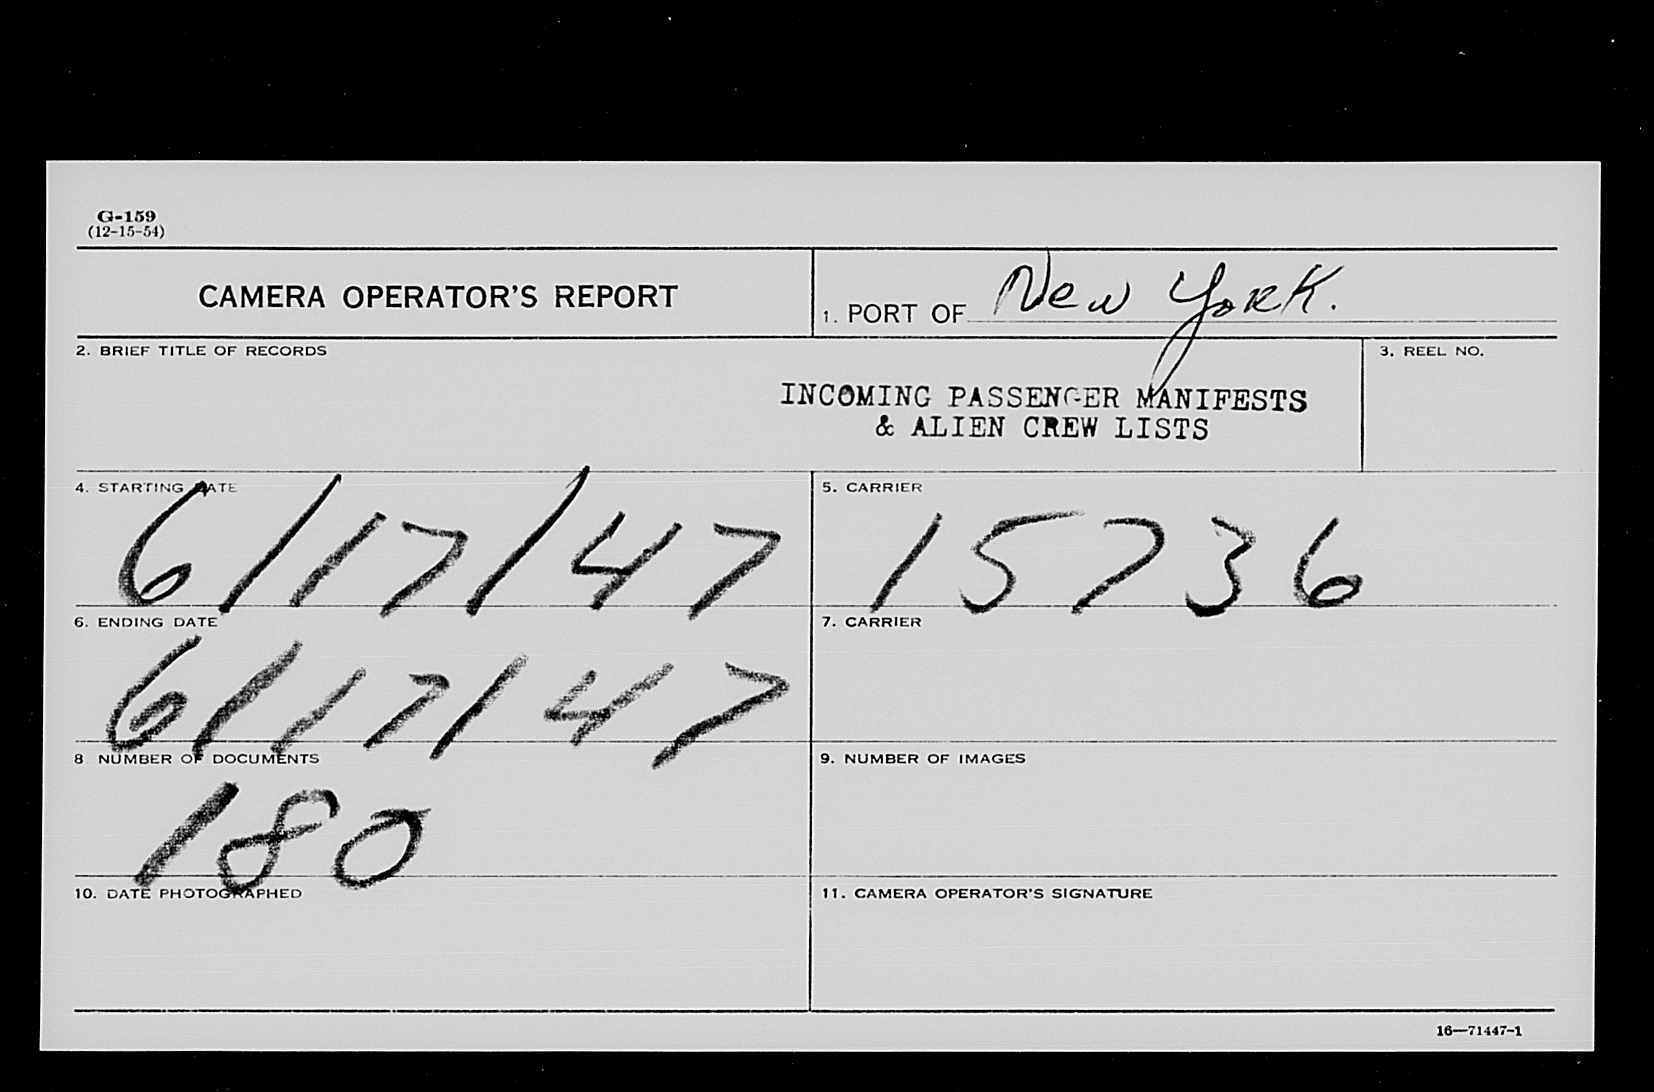 G-159
(12-15-54)
CAMERA OPERATOR'S REPORT
1. PORT OF New York.
2. BRIEF TITLE OF RECORDS
INCOMING PASSENGER MANIFESTS
& ALIEN CREW LISTS
3. REEL NO.
4. STARTING DATE
6/17/47
5. CARRIER
15736
6. ENDING DATE
6/17/47
7. CARRIER
8 NUMBER OF DOCUMENTS
180
9. NUMBER OF IMAGES
10. DATE PHOTOGRAPHED
11. CAMERA OPERATOR'S SIGNATURE
16—71447-1